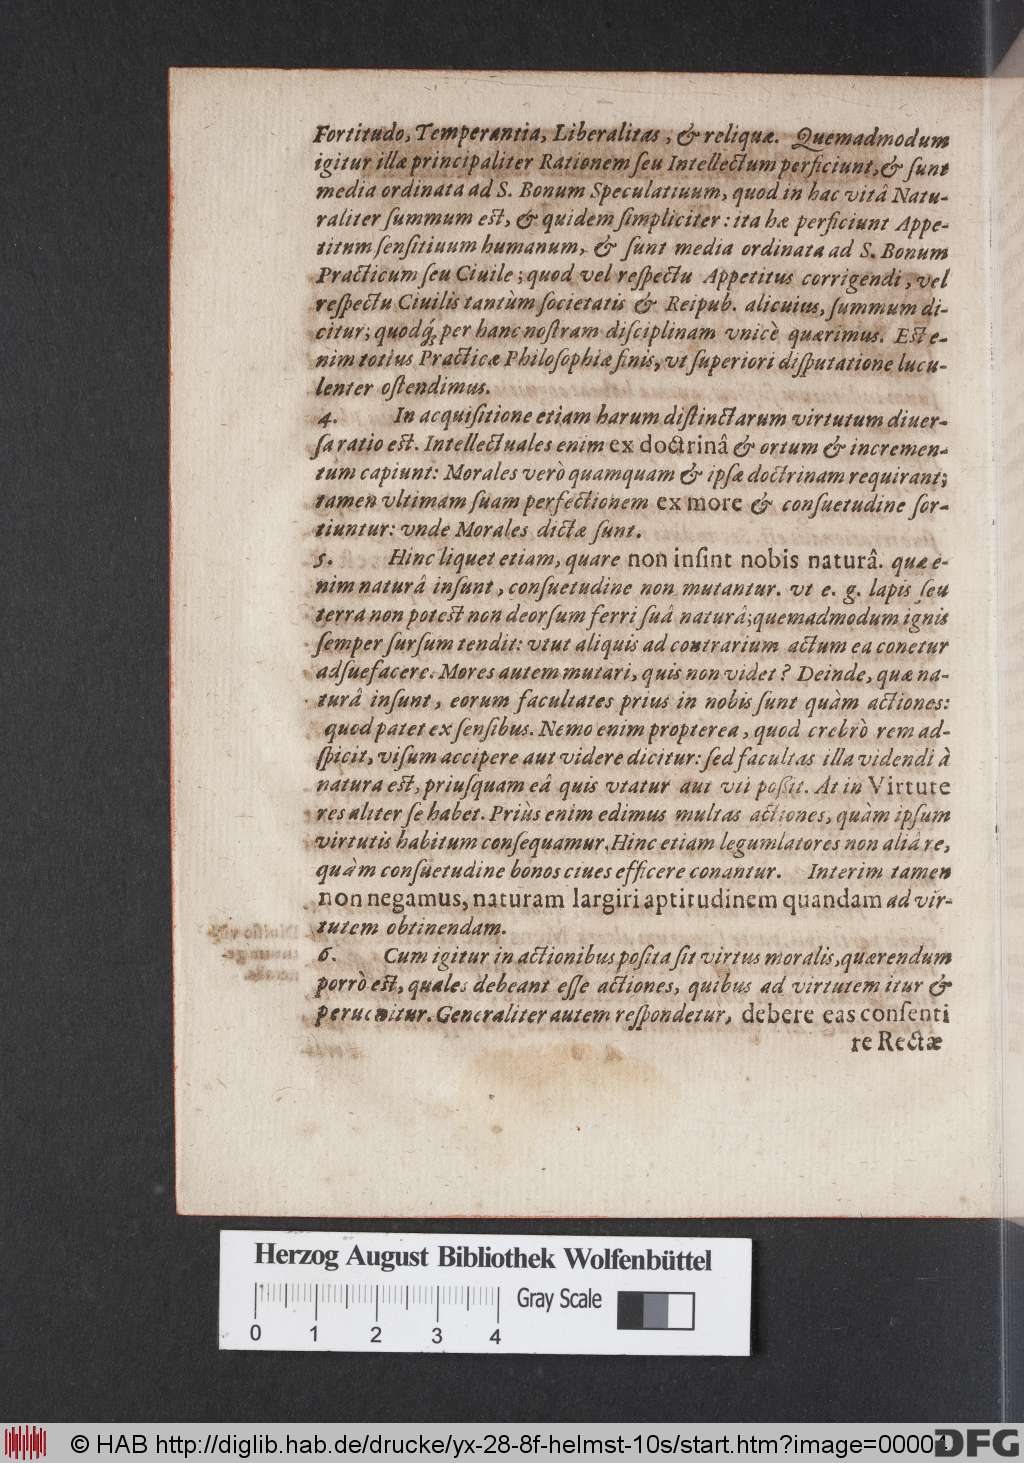 Fortitudo, Temperantia, Liberalitas, & reliquæ. Quemadmodum
igitur illæ principaliter Rationem ſeu Intellectum perficiunt, & ſunt
media ordinata ad S. Bonum Speculatiuum, quod in hac vitâ Natu-
raliter ſummum eſt, & quidem ſimpliciter: ita hæ perficiunt Appe-
titum ſenſitiuum humanum, & ſunt media ordinata ad S. Bonum
Practicum ſeu Ciuile; quod vel reſpectu Appetitus corrigendi, vel
reſpectu Ciuilis tantùm ſocietatis & Reipub. alicuius, ſummum di-
citur; quodq́; per hanc noſtram diſciplinam vnicè quærimus. Eſt e-
nim totius Practicæ Philoſophiæ finis, vt ſuperiori diſputatione lucu-
lenter oſtendimus.
4. In acquiſitione etiam harum diſtinctarum virtutum diuer-
ſa ratio eſt. Intellectuales enim ex doctrinâ & ortum & incremen-
tum capiunt: Morales verò quamquam & ipſæ doctrinam requirant;
tamen vltimam ſuam perfectionem ex more & conſuetudine ſor-
tiuntur: vnde Morales dictæ ſunt.
5. Hinc liquet etiam, quare non inſint nobis naturâ. quæ e-
nim naturâ inſunt, conſuetudine non mutantur. vt e. g. lapis ſeu
terra non poteſt non deorſum ferri ſuâ naturâ; quemadmodum ignis
ſemper ſurſum tendit: vtut aliquis ad contrarium actum ea conetur
adſuefacere. Mores autem mutari, quis non videt? Deinde, quæ na-
turâ inſunt, eorum facultates prius in nobis ſunt quàm actiones:
quod patet ex ſenſibus. Nemo enim propterea, quod crebrò rem ad-
ſpicit, viſum accipere aut videre dicitur: ſed facultas illa videndi à
natura eſt, priuſquam eâ quis vtatur aut vti poſſit. At in Virtute
res aliter ſe habet. Priùs enim edimus multas actiones, quàm ipſum
virtutis habitum conſequamur. Hinc etiam legumlatores non aliâ re,
quàm conſuetudine bonos ciues efficere conantur. Interim tamen
non negamus, naturam largiri aptitudinem quandam ad vir-
tutem obtinendam.
6. Cum igitur in actionibus poſita ſit virtus moralis, quærendum
porrò eſt, quales debeant eſſe actiones, quibus ad virtutem itur &
peruenitur. Generaliter autem reſpondetur, debere eas conſenti
re Rectæ
Herzog August Bibliothek Wolfenbüttel
Gray Scale
0 1 2 3 4
© HAB http://diglib.hab.de/drucke/yx-28-8f-helmst-10s/start.htm?image=00004
DFG